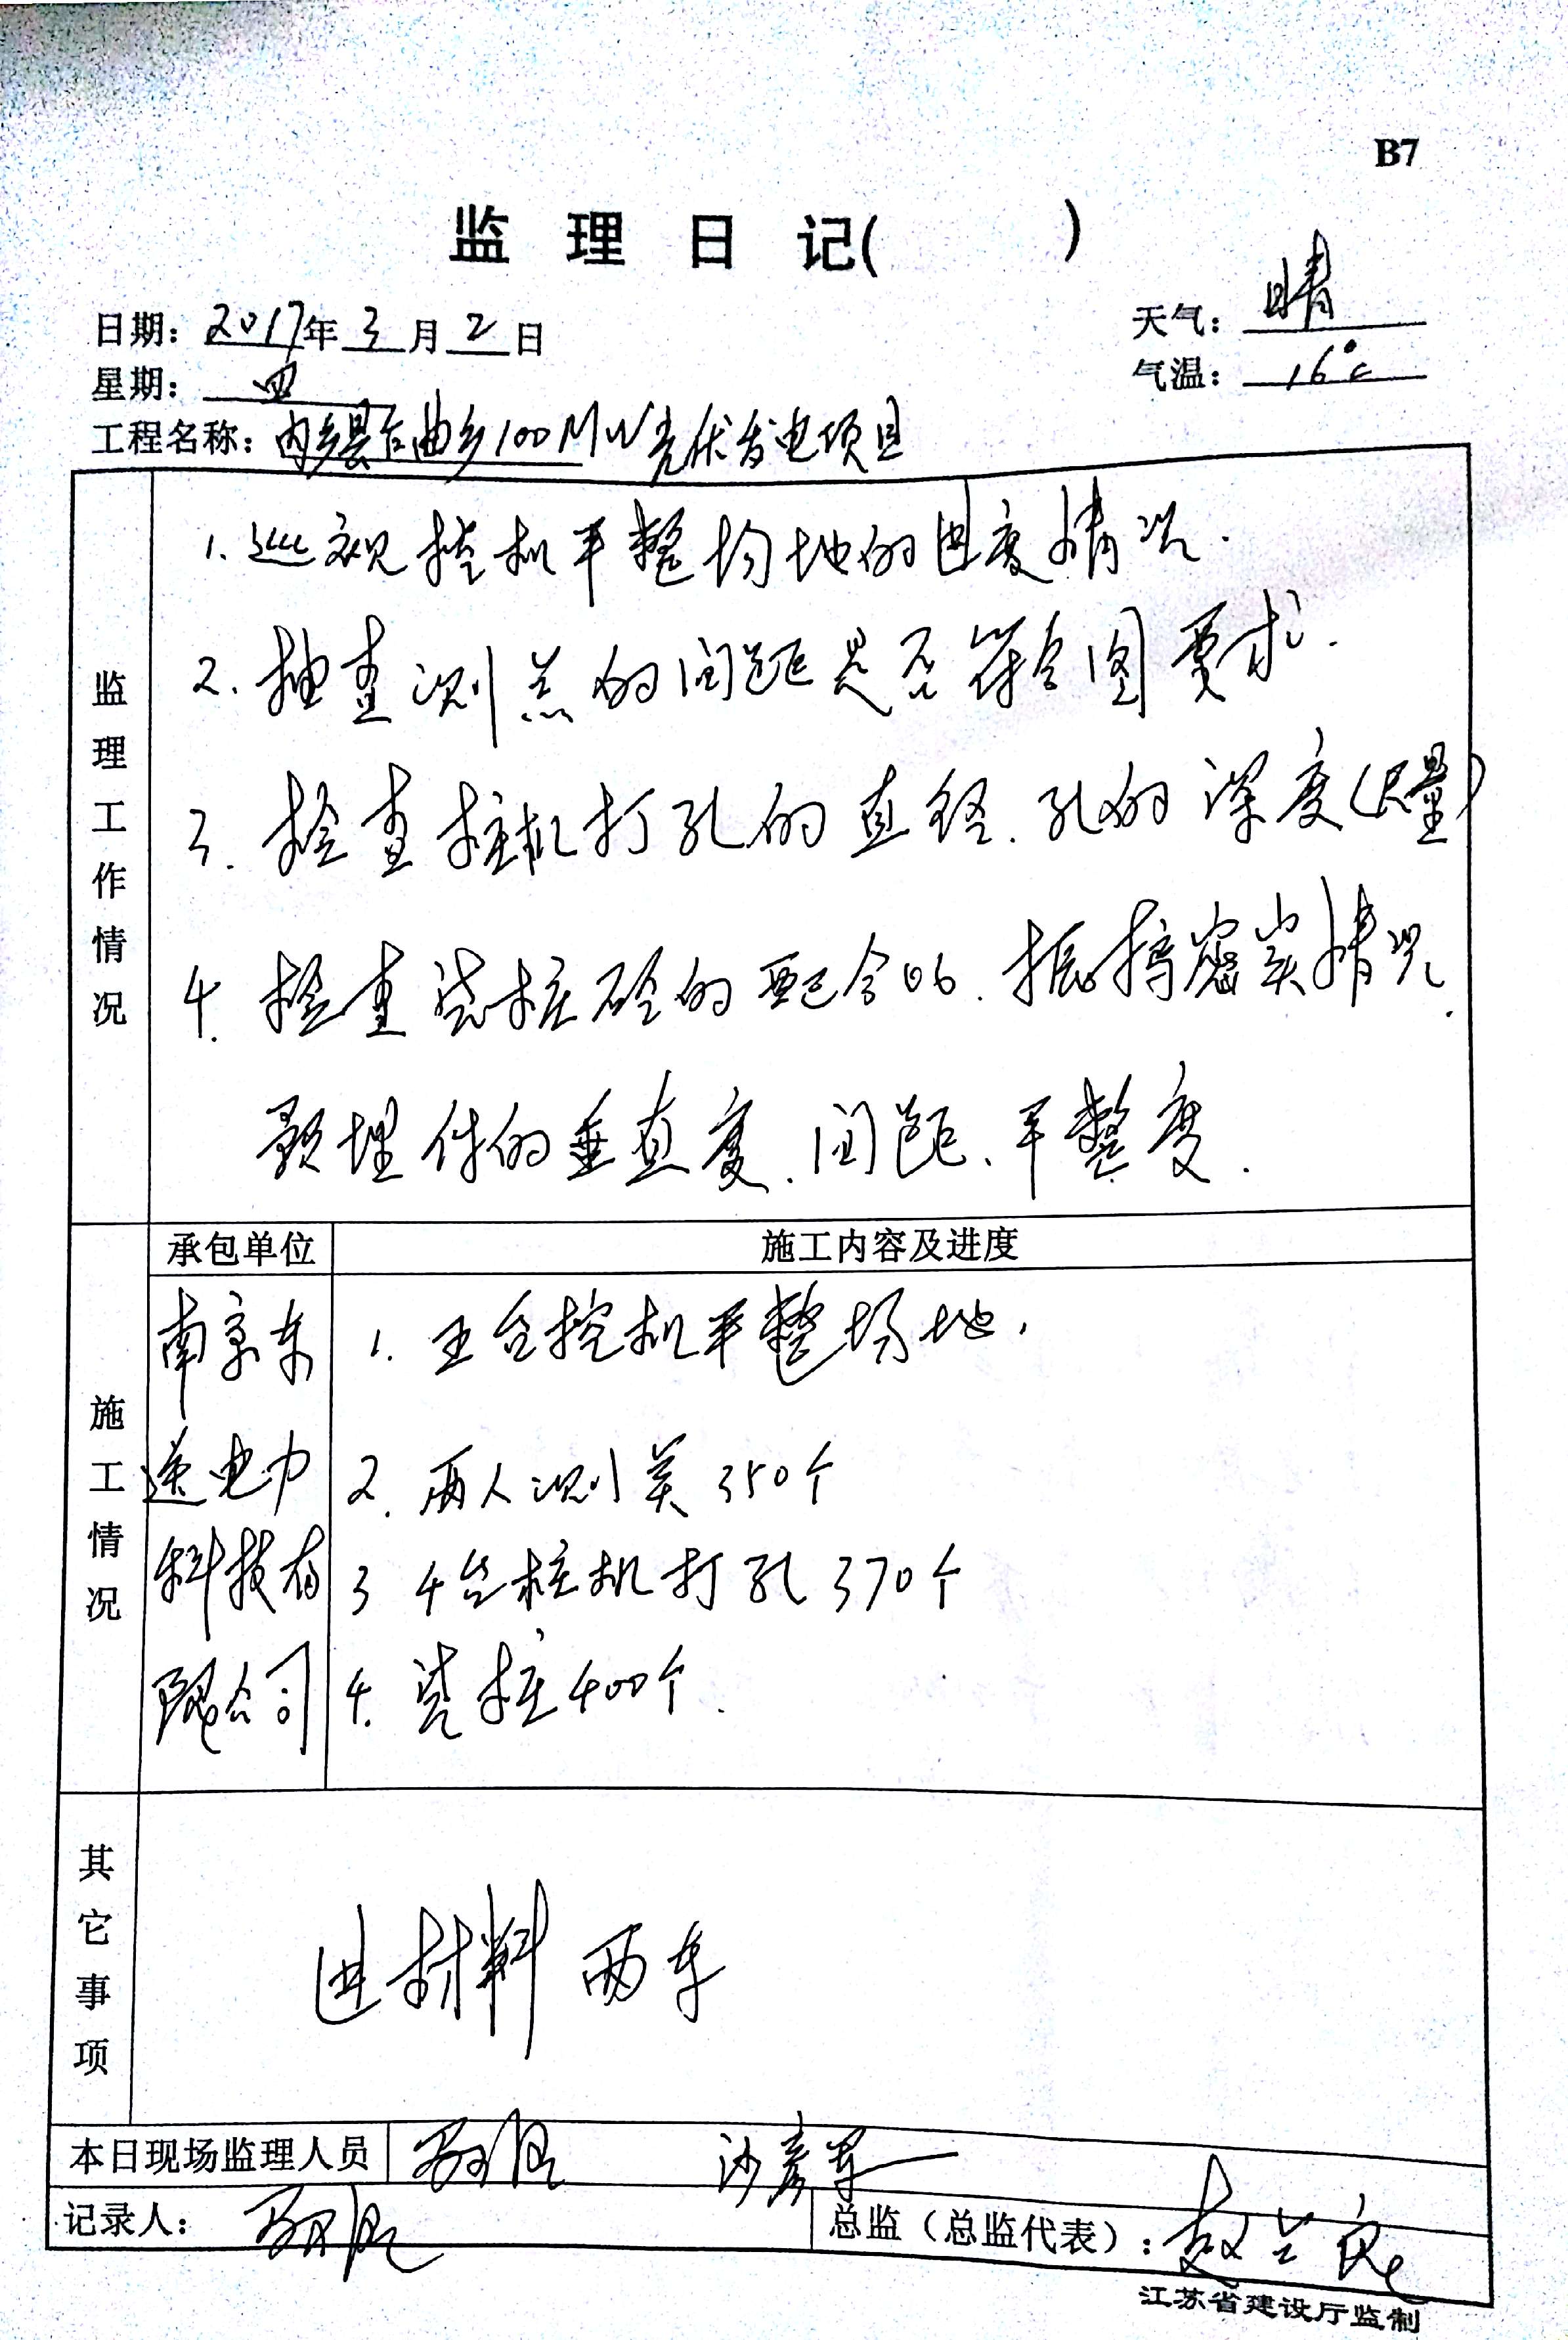 B7
监 理 日 记( )
日期: 2017年 3 月 2 日
天气: 晴
星期: 四
气温: 16℃
工程名称: 内乡县后曲乡100MW光伏发电项目
监理工作情况
1. 巡视挖机平整场地的进度情况.
2. 抽查测点的间距是否符合图要求.
3. 检查桩机打孔的直径.孔的深度(尺量)
4. 检查浇桩砼的配合比.振捣密实情况.
预埋件的垂直度.间距、平整度.
施工情况
承包单位
施工内容及进度
南京东
送电力
科技有
限公司
1. 五台挖机平整场地.
2. 两人测点350个
3 4台桩机打孔370个
4. 浇桩400个.
其它事项
进材料两车
本日现场监理人员 沙彦军
记录人:
总监（总监代表）: 赵兰良
江苏省建设厅监制